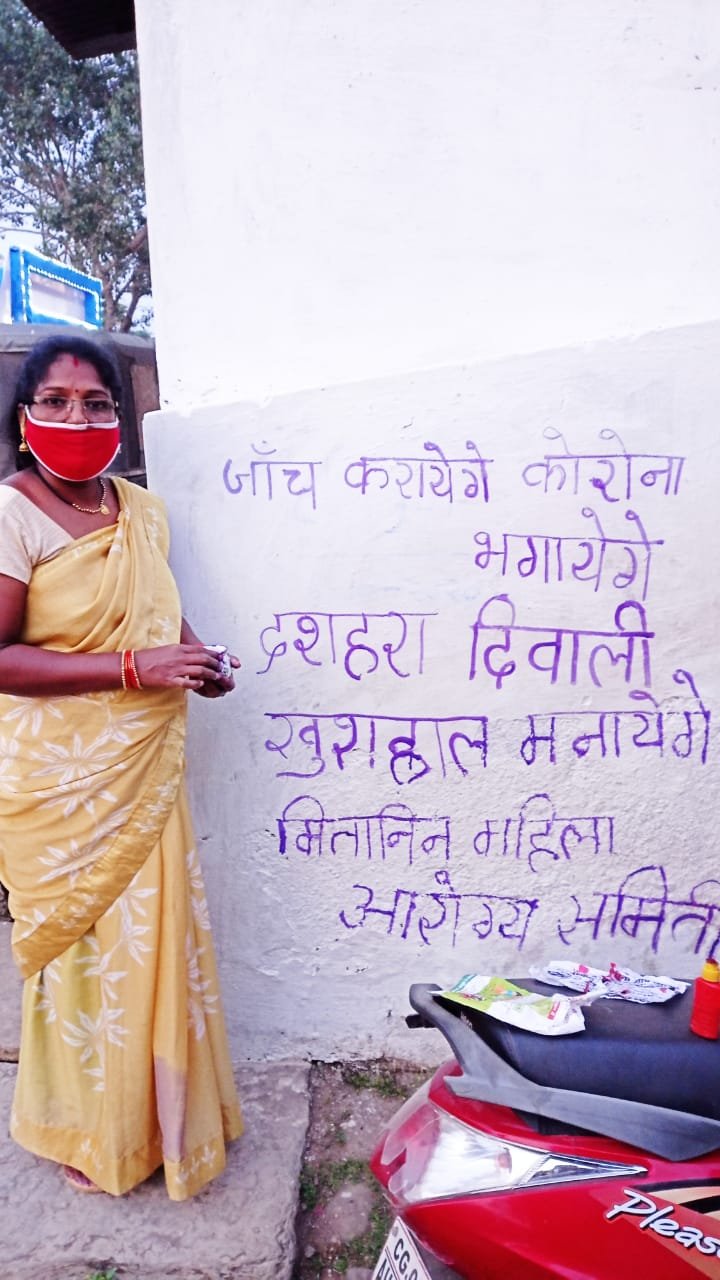 जाँच करायेगे कोरोना
भगायेगे
दशहरा दिवाली
खुशहाल मनायेगे
मितानिन महिला
आरोग्य समिती
Pleas
CG.0